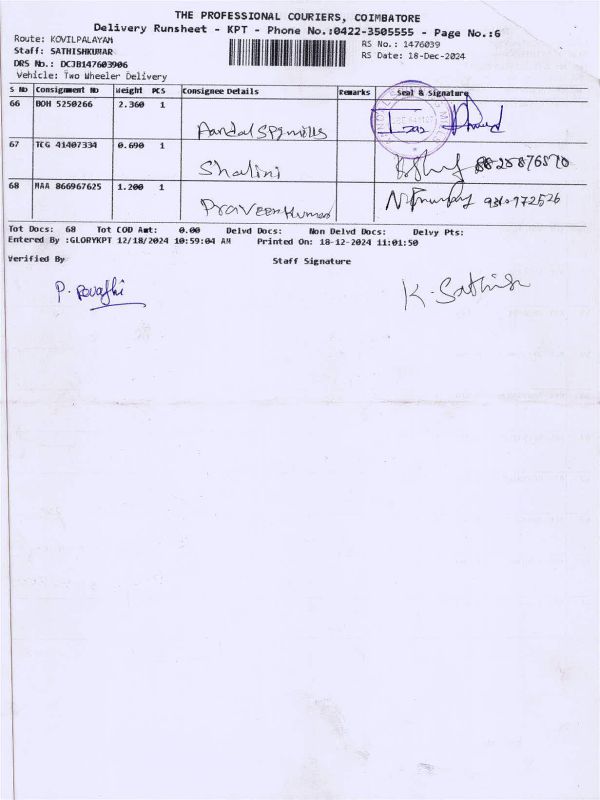 THE PROFESSIONAL COURIERS, COIMBATORE
Delivery Runsheet - KPT - Phone No.:0422-3505555 - Page No.:6
Route: KOVILPALAYAM
RS No.: 1476039
Staff: SATHISHKUMAR
RS Date: 18-Dec-2024
DRS No.: DCJB147603906
Vehicle: Two Wheeler Delivery
S No Consignment No Weight PCS Consignee Details Remarks Seal & Signature
66 BOH 5250266 2.360 1
Aandal Spg mills
67 TCG 41407334 0.690 1
Shalini
68 MAA 866967625 1.200 1
Praveenkumar
Tot Docs: 68 Tot COD Amt: 0.00 Delvd Docs: Non Delvd Docs: Delvy Pts:
Entered By :GLORYKPT 12/18/2024 10:59:04 AM Printed On: 18-12-2024 11:01:50
Verified By Staff Signature
K. Sathish